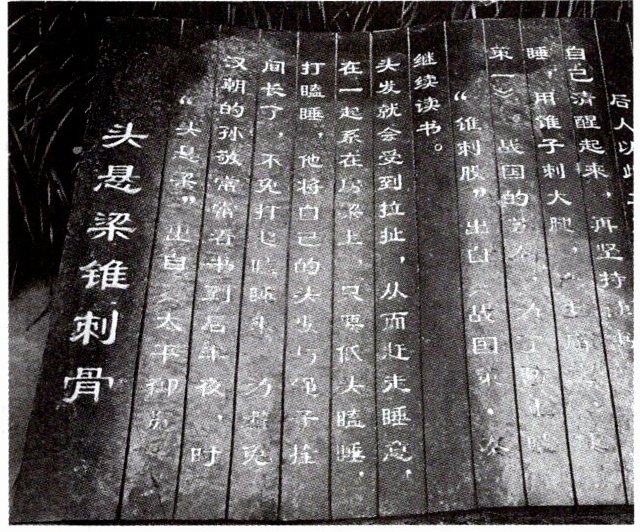 头悬梁锥刺骨
“头悬梁”出自《太平御
汉朝的孙敬常常看书到后半夜，时
间长了，不免打起瞌睡来。为避免
打瞌睡，他将自己的头发与绳子拴
在一起系在房梁上，只要低头瞌睡，
头发就会受到拉扯，从而赶走睡意，
继续读书。
“锥刺股”出自《战国策·秦
策一》。战国的苏秦，为了防止
睡，用锥子刺大腿，
自己清醒起来，再坚持读
后人以此